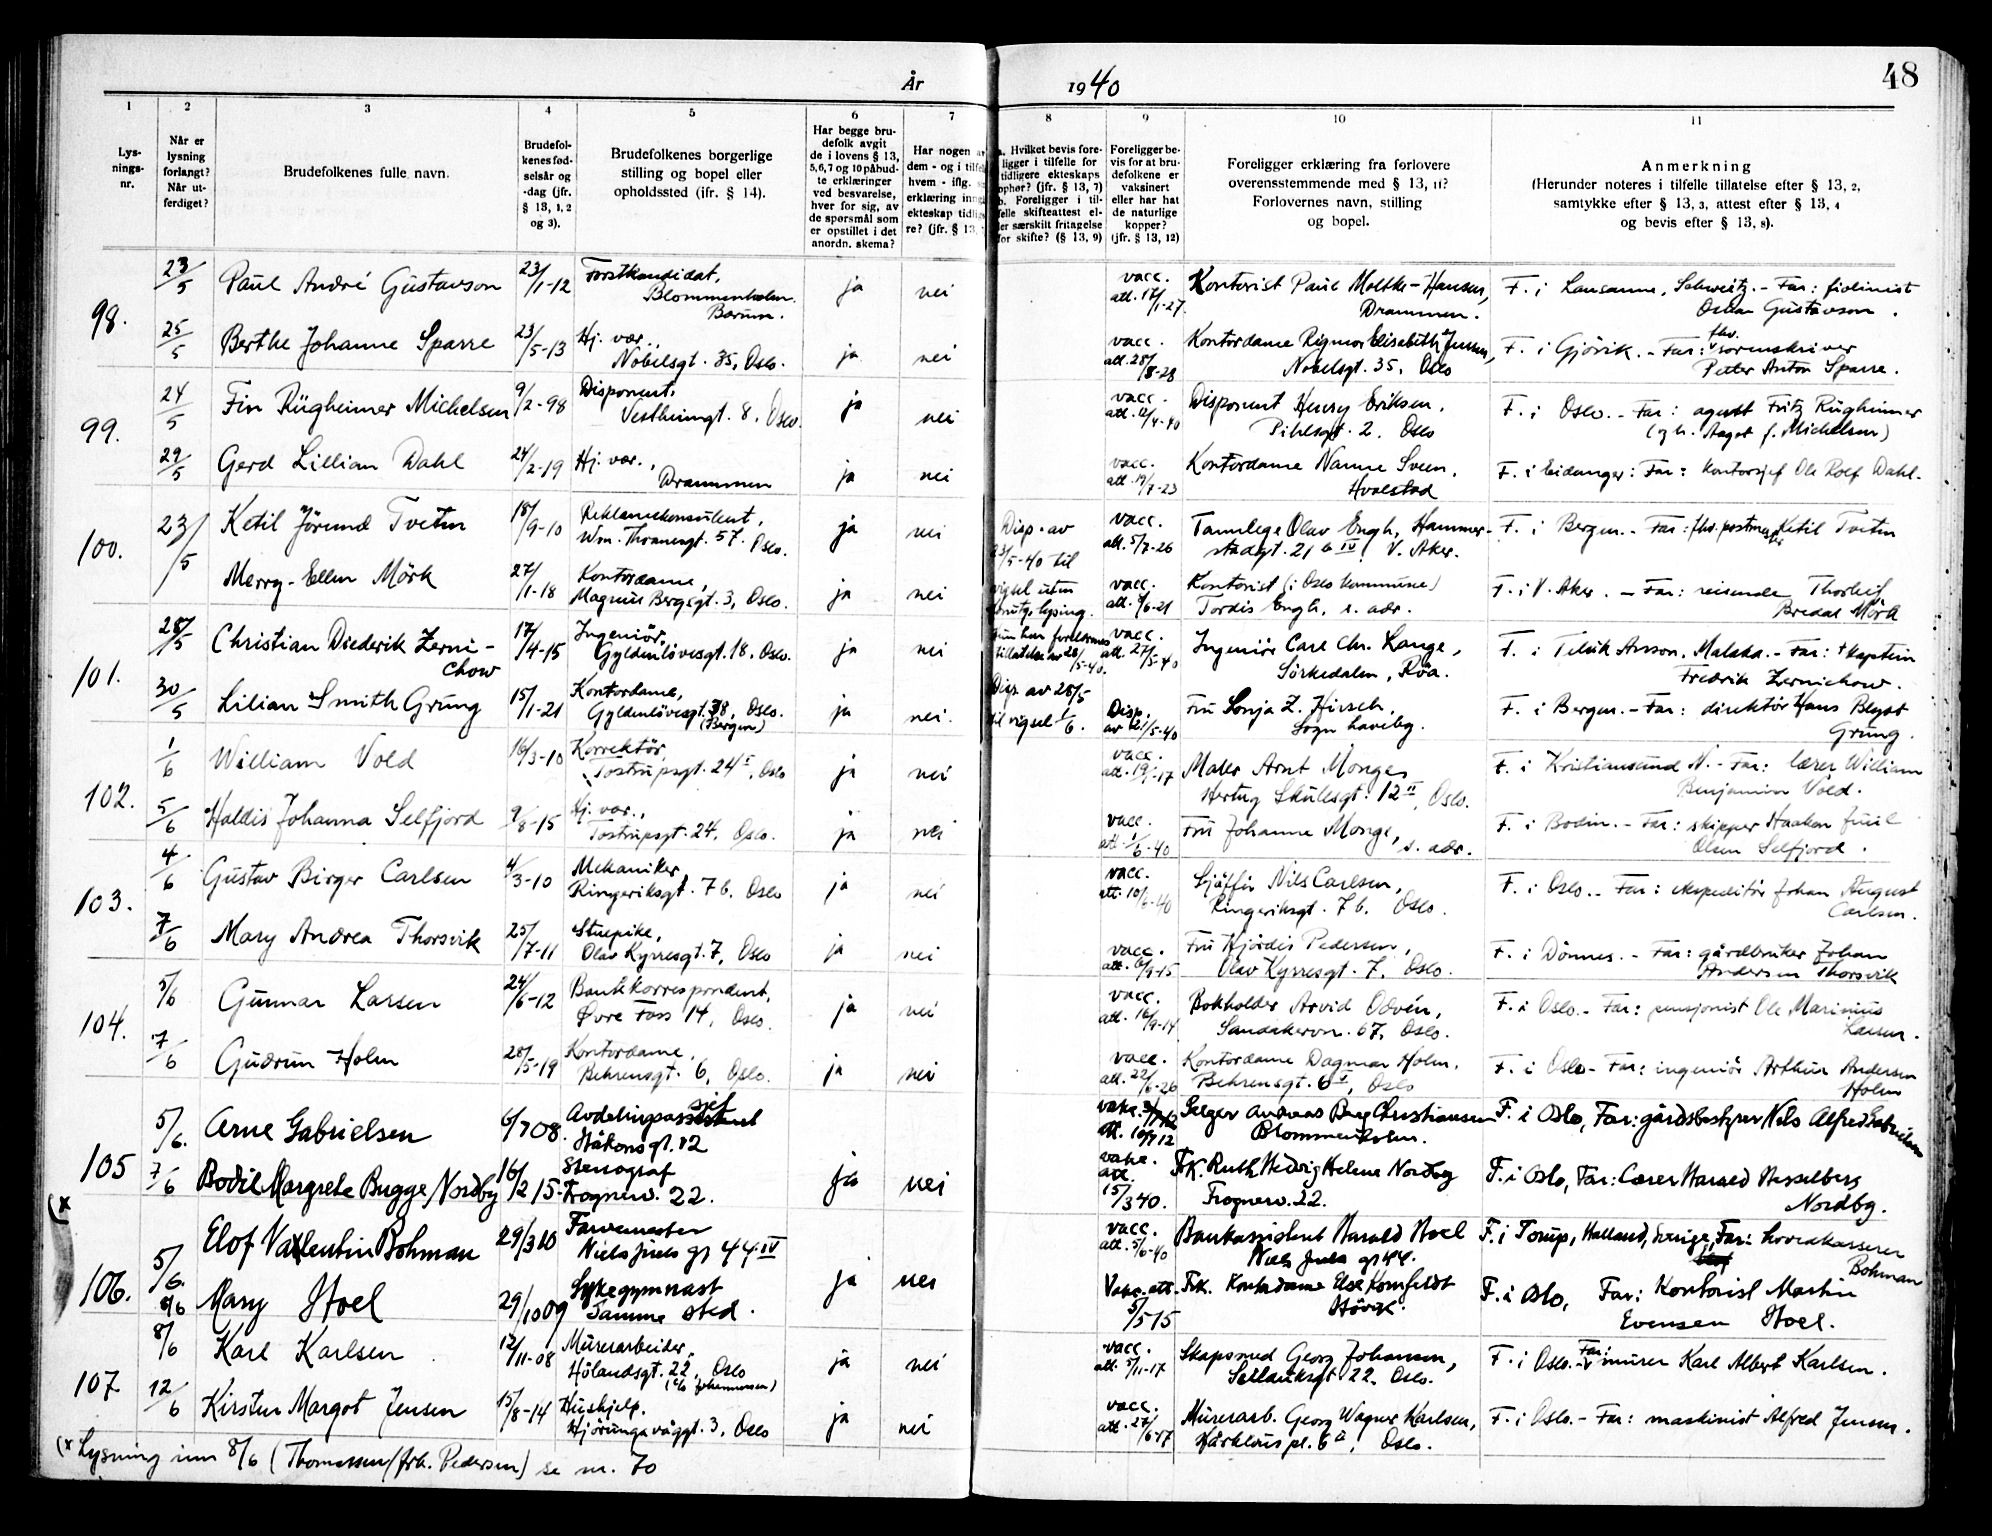 År
1940
48
1 2 3 4 5 6 7 8 9 10 11
Lys-
nings-
nr.
Når er
lysning
forlangt?
Når ut-
ferdiget?
Brudefolkenes fulle navn.
Brudefol-
kenes fød-
selsår og
-dag (jfr.
§ 13, 1, 2
og 3).
Brudefolkenes borgerlige
stilling og bopel eller
opholdssted (ifr. § 14).
Har begge bru-
defolk avgit
de i lovens § 13,
5,6,7 og 10 påbud-
te erklæringer
ved besvarelse,
hver for sig, av
de spørsmål som
er opstillet i det
anordn. skema?
Har nogen
dem - og i
hvem - iflg.
erklæring
ekteskap
re? (jfr. § 13,
Hvilket bevis fore-
ligger i tilfelle for
tidligere ekteskaps
ophør? (jfr. § 13, 7)
b. Foreligger i til-
felle skifteattest el-
ler særskilt fritagelse
for skifte? (§ 13, 9)
Foreligger be-
vis for at bru-
defolkene er
vaksinert
eller har hat
de naturlige
kopper?
(jfr. § 13, 12)
Foreligger erklæring fra forlovere
overensstemmende med § 13, 11?
Forlovernes navn, stilling
og bopel.
Anmerkning
(Herunder noteres i tilfelle tillatelse efter § 13, 2,
samtykke efter § 13, 3, attest efter § 13, 4
og bevis efter § 13, 8).
98.
23/5 Paul André Gustavson 23/1-12 Forstkandidat, Blommenholm. Bærum. ja nei vacc. att. 17/1-27 Kontorist Paul Moltke-Hansen, Drammen. F. i Lausanne, Schweitz. - Far: fiolinist Oskar Gustavson.
25/5 Berthe Johanne Sparre 23/5-13 Hj. vær., Nobelsgt. 35, Oslo. ja nei vacc. att. 28/8-28 Kontordame Rigmor Elisabeth Jensen, Nobelsgt. 35, Oslo F. i Gjövik. - Far: fhv. sorenskriver Peter Anton Sparre.
99.
24/5 Fin Rügheimer Michelsen 9/2-98 Disponent, Vestheimgt. 8, Oslo. ja nei vacc. att. 12/4-40 Disponent Henry Eriksen, Pihlsgt. 2. Oslo F. i Oslo. - Far: agent Fritz Rügheimer (og h. Aagot f. Michelsen)
29/5 Gerd Lillian Dahl 24/2-19 Hj. vær., Drammen ja nei vacc. att. 19/7-23 Kontordame Nanne Sveen, Hvalstad F. i Eidanger: Far: kontorsjef Ole Rolf Dahl.
100.
23/5 Ketil Jörund Tveten 18/9-10 Reklamekonsulent, Wm. Thranesgt. 57. Oslo. ja nei Disp. av 23/5-40 til vigsel uten forutg. lysing. vacc. att. 5/7-26 Tannlege Olav Engh, Hammer-stadgt. 21 b IV, V. Aker. F. i Bergen. - Far: fhv. postmester Ketil Tveten
Merry-Ellen Mörk 27/1-18 Kontordame, Magnus Bergsgt. 3, Oslo. ja nei vacc. att. 9/6-21 Kontorist (i Oslo kommune) Tordis Engh, s. adr. F. i V. Aker. - Far: reisende Thorleif Bredal Mörk
101.
28/5 Christian Diederik Zerni-chow 17/4-15 Ingeniör, Gyldenlövesgt. 18, Oslo. ja nei Hun har foreldrenes tillatelse av 28/5-40. vacc. att. 27/5-40 Ingeniör Carl Chr. Lange, Sörkedalen, Röa. F. i Telük Anson, Malaka. - Far: † kaptein Fredrik Zernichow.
30/5 Lilian Smith Grung 15/1-21 Kontordame, Gyldenlövesgt. 38, Oslo. (Bergen) ja nei. Disp. av 28/5 til vigsel 1/6. Disp. av 21/5-40 Fru Sonja Z. Hirsch, Sogn haveby. F. i Bergen. - Far: direktör Hans Blegst Grung.
102.
1/6 William Vold 16/3-10 Korrektör, Tostrupsgt. 24 I, Oslo ja nei vacc. att. 19/1-17 Maler Arnt Monge, Hertug Skulesgt. 12 II, Oslo. F. i Kristiansund N. - Far: lærer William Benjamin Vold.
5/6 Haldis Johanna Selfjord 9/8-15 Hj. vær., Tostrupsgt. 24, Oslo. ja nei vacc. att. 1/6-40 Fru Johanne Monge, s. adr. F. i Bodin. - Far: skipper Haakon Juul Olsen Selfjord.
103.
4/6 Gustav Birger Carlsen 4/3-10 Mekaniker, Ringeriksgt. 7 b. Oslo ja nei vacc. att. 10/6-40 Sjåför Nils Carlsen, Ringeriksgt. 7 b. Oslo. F. i Oslo. - Far: ekspeditör Johan August Carlsen.
7/6 Mary Andrea Thorsvik 25/7-11 Stuepike, Olav Kyrresgt. 7, Oslo ja nei vacc. att. 6/9-15 Fru Hjördis Pedersen, Olav Kyrresgt. 7, Oslo. F. i Dönnes. - Far: gårdbruker Johan Andersen Thorsvik
104.
5/6 Gunnar Larsen 24/6-12 Bankkorrespondent, Øvre Foss 14, Oslo. ja nei vacc. att. 16/9-14 Bokholder Arvid Odvén, Sandakervn. 67, Oslo. F. i Oslo. - Far: pensjonist Ole Marinius Larsen.
7/6 Gudrun Holm 28/5-19 Kontordame, Behrensgt. 6, Oslo. ja nei vacc. att. 22/6-26 Kontordame Dagmar Holm, Behrensgt. 6 I, Oslo F. i Oslo - Far: ingeniör Arthur Andersen Holm
105
5/6. Arne Gabrielsen 6/7 08. Avdelingssjef Håkonsgt. 12 vakc. att. 16/9 12 Selger Andreas Berg Christiansen Blommenholm. F. i Oslo, Far: gårdsbestyrer Nils Alfred Gabrielsen
7/6 Bodil Margrete Bugge Nordby 16/2 15. Stenograf Frognerv. 22. ja nei vakc. att. 15/3 40. Frk. Ruth Hedvig Helene Nordby Frognerv. 22. F. i Oslo, Far: Lærer Harald Hesselberg Nordby.
(x
106.
5/6. Elof Valentin Bohman 29/3 10 Farvemester Niels Juels gt 44 IV ja nei vacc. att. 5/6-40 Bankassistent Harald Hoel Niels Juels gt 44. F. i Torup, Halland, Sverige, Far: hovedkasserer Bohman
8/6 Mary Hoel 29/10 09 Sykegymnast Samme sted. Vakc. att. 5/5 15 Frk. Kontordame Else Kornfeldt Hövik. F. i Oslo, Far: Kontorist Martin Evensen Hoel.
107
8/6 Karl Karlsen 12/11-08 Murerarbeider, Hölandsgt. 22, Oslo (c/o Johannessen) ja nei vacc. att. 5/11-17 Skapsmed Georg Johansen, Selläuksgt 22. Oslo. F. i Oslo. - Far: murer Karl Albert Karlsen.
12/6 Kirsten Margot Jensen 15/8-14 Hushjelp. Hjörungavåggt. 3, Oslo ja nei vacc. att. 27/6-17 Murerarb. Georg Wagner Karlsen, Hårklous pl. 6 II, Oslo. F. i Oslo. - Far: maskinist Alfred Jensen.
(x Lysning inn 8/6 (Thomassen/frk. Pedersen) se nr. 70